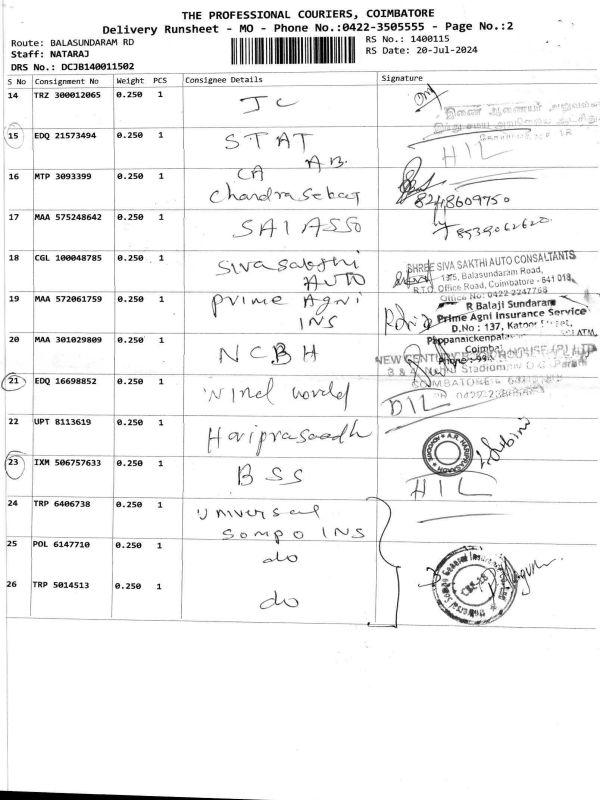 THE PROFESSIONAL COURIERS, COIMBATORE
Delivery Runsheet - MO - Phone No.:0422-3505555 - Page No.:2
Route: BALASUNDARAM RD
RS No.: 1400115
Staff: NATARAJ
RS Date: 20-Jul-2024
DRS No.: DCJB140011502
S No Consignment No Weight PCS Consignee Details Signature
14 TRZ 300012065 0.250 1 JC
15 EDQ 21573494 0.250 1 STAT HIL
16 MTP 3093399 0.250 1 CA
Chandrasekar 8248609750
17 MAA 575248642 0.250 1 SAI ASSO 8539062620
18 CGL 100048785 0.250 1 Sivasakthi
AUTO
SHREE SIVA SAKTHI AUTO CONSALTANTS
1375, Balasundaram Road,
R.T.O. Office Road, Coimbatore - 641 018.
Office No: 0422 2247768
19 MAA 572061759 0.250 1 Prime Agni
INS
R Balaji Sundaram
Prime Agni Insurance Service
D.No : 137, Katoor Street,
Pappanaickenpalayam
20 MAA 301029809 0.250 1 NCBH
NEW CENTURY BOOK HOUSE (P) LTD
COIMBATORE
21 EDQ 16698852 0.250 1 Wind World DIL
22 UPT 8113619 0.250 1 Hariprasaadh
23 IXM 506757633 0.250 1 BSS HIL
24 TRP 6406738 0.250 1 Universal
Sompo INS
25 POL 6147710 0.250 1 do
26 TRP 5014513 0.250 1 do